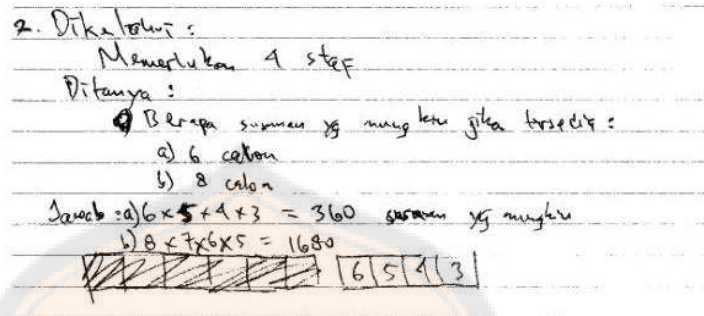 2. Diketahui :
Memerlukan 4 staf
Ditanya :
Berapa susunan yg mungkin jika tersedia :
a) 6 calon
b) 8 calon
Jawab : a) 6 × 5 × 4 × 3 = 360 susunan yg mungkin
b) 8 × 7 × 6 × 5 = 1680
6 5 4 3